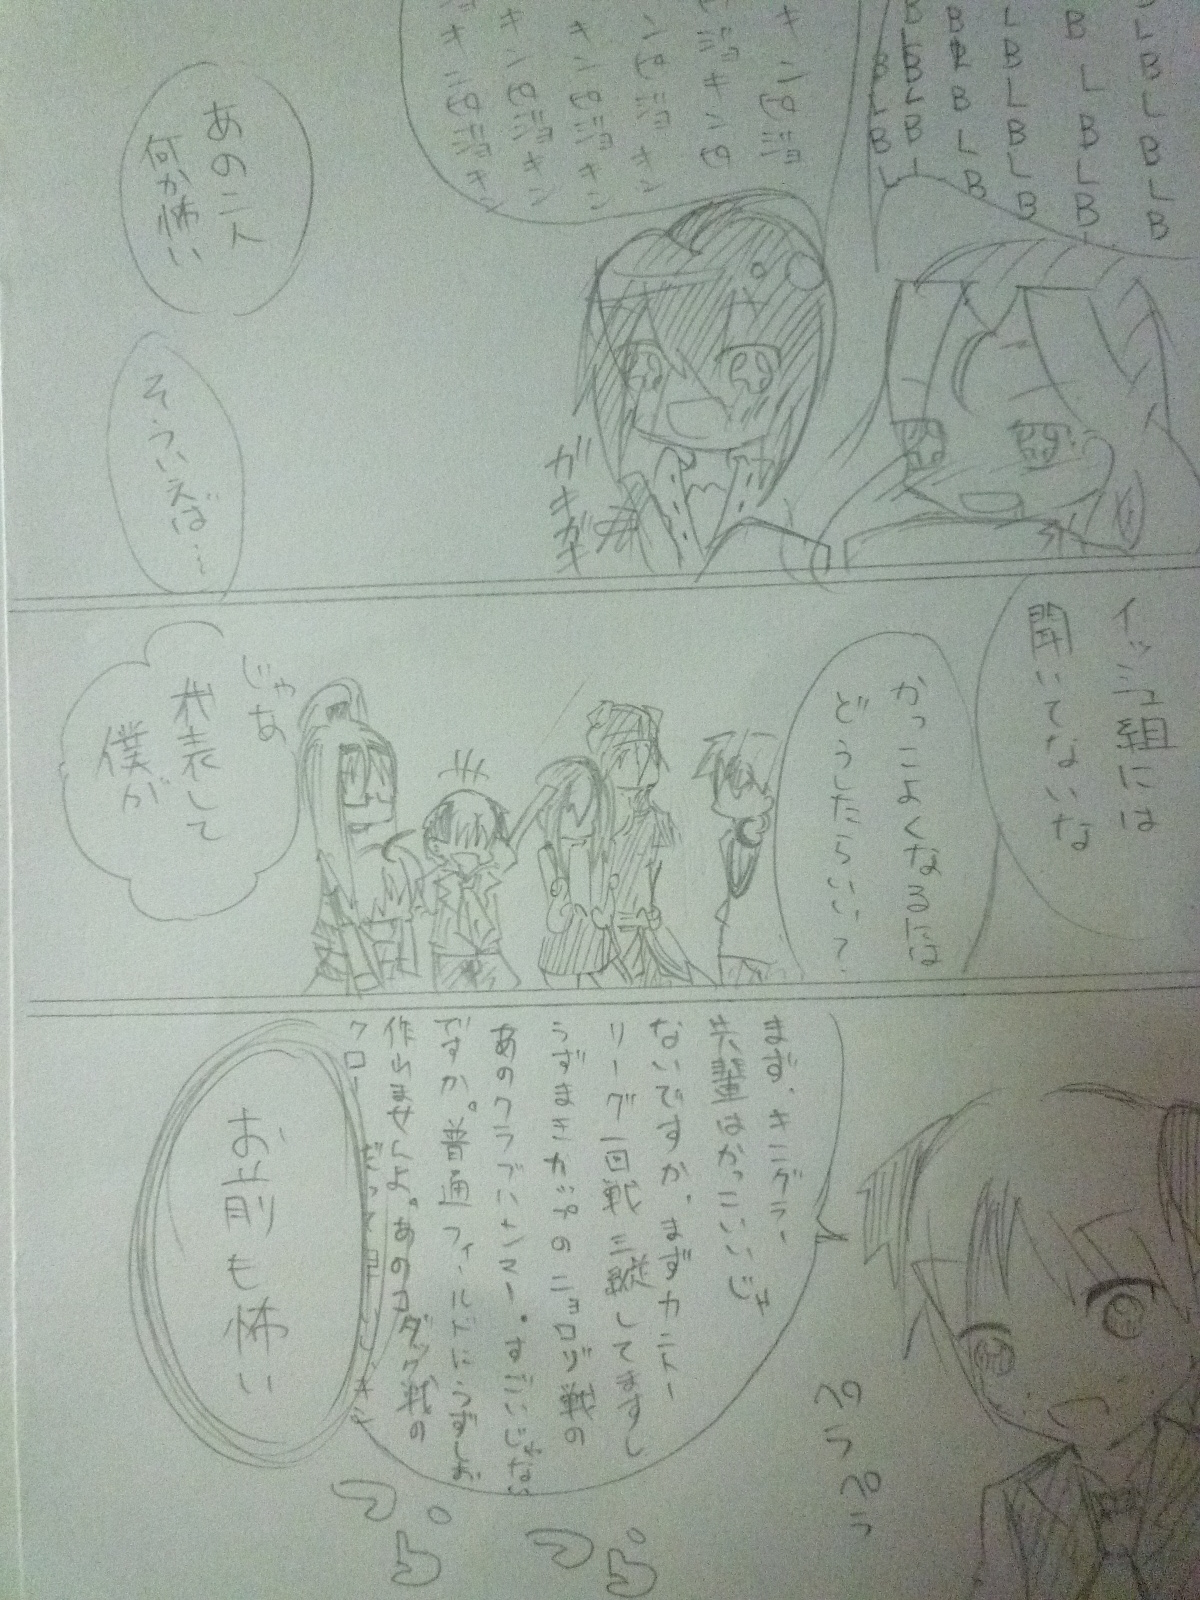 BLBLB
BLBLB
LBLBLB
BBBLB
BLBLB
BLBL
キンピジョ
ピジョキンピ
ンピジョキン
キンピジョキン
キンピジョキン
キンピジョキン
ガキガキ
あの二人
何か怖い
そういえば…
イッシュ組には
聞いてないな
かっこよくなるには
どうしたらいい?
じゃあ
代表して
僕が
まず、キングラー
先輩はかっこいいじゃ
ないですか、まずカントー
リーグ一回戦三縦してますし
うずまきカップのニョロゾ戦の
あのクラブハンマー。すごいじゃない
ですか。普通フィールドにうずしお
作りませんよ。あのコダック戦の
クロー
ペラペラ
ペラペラ
お前も怖い